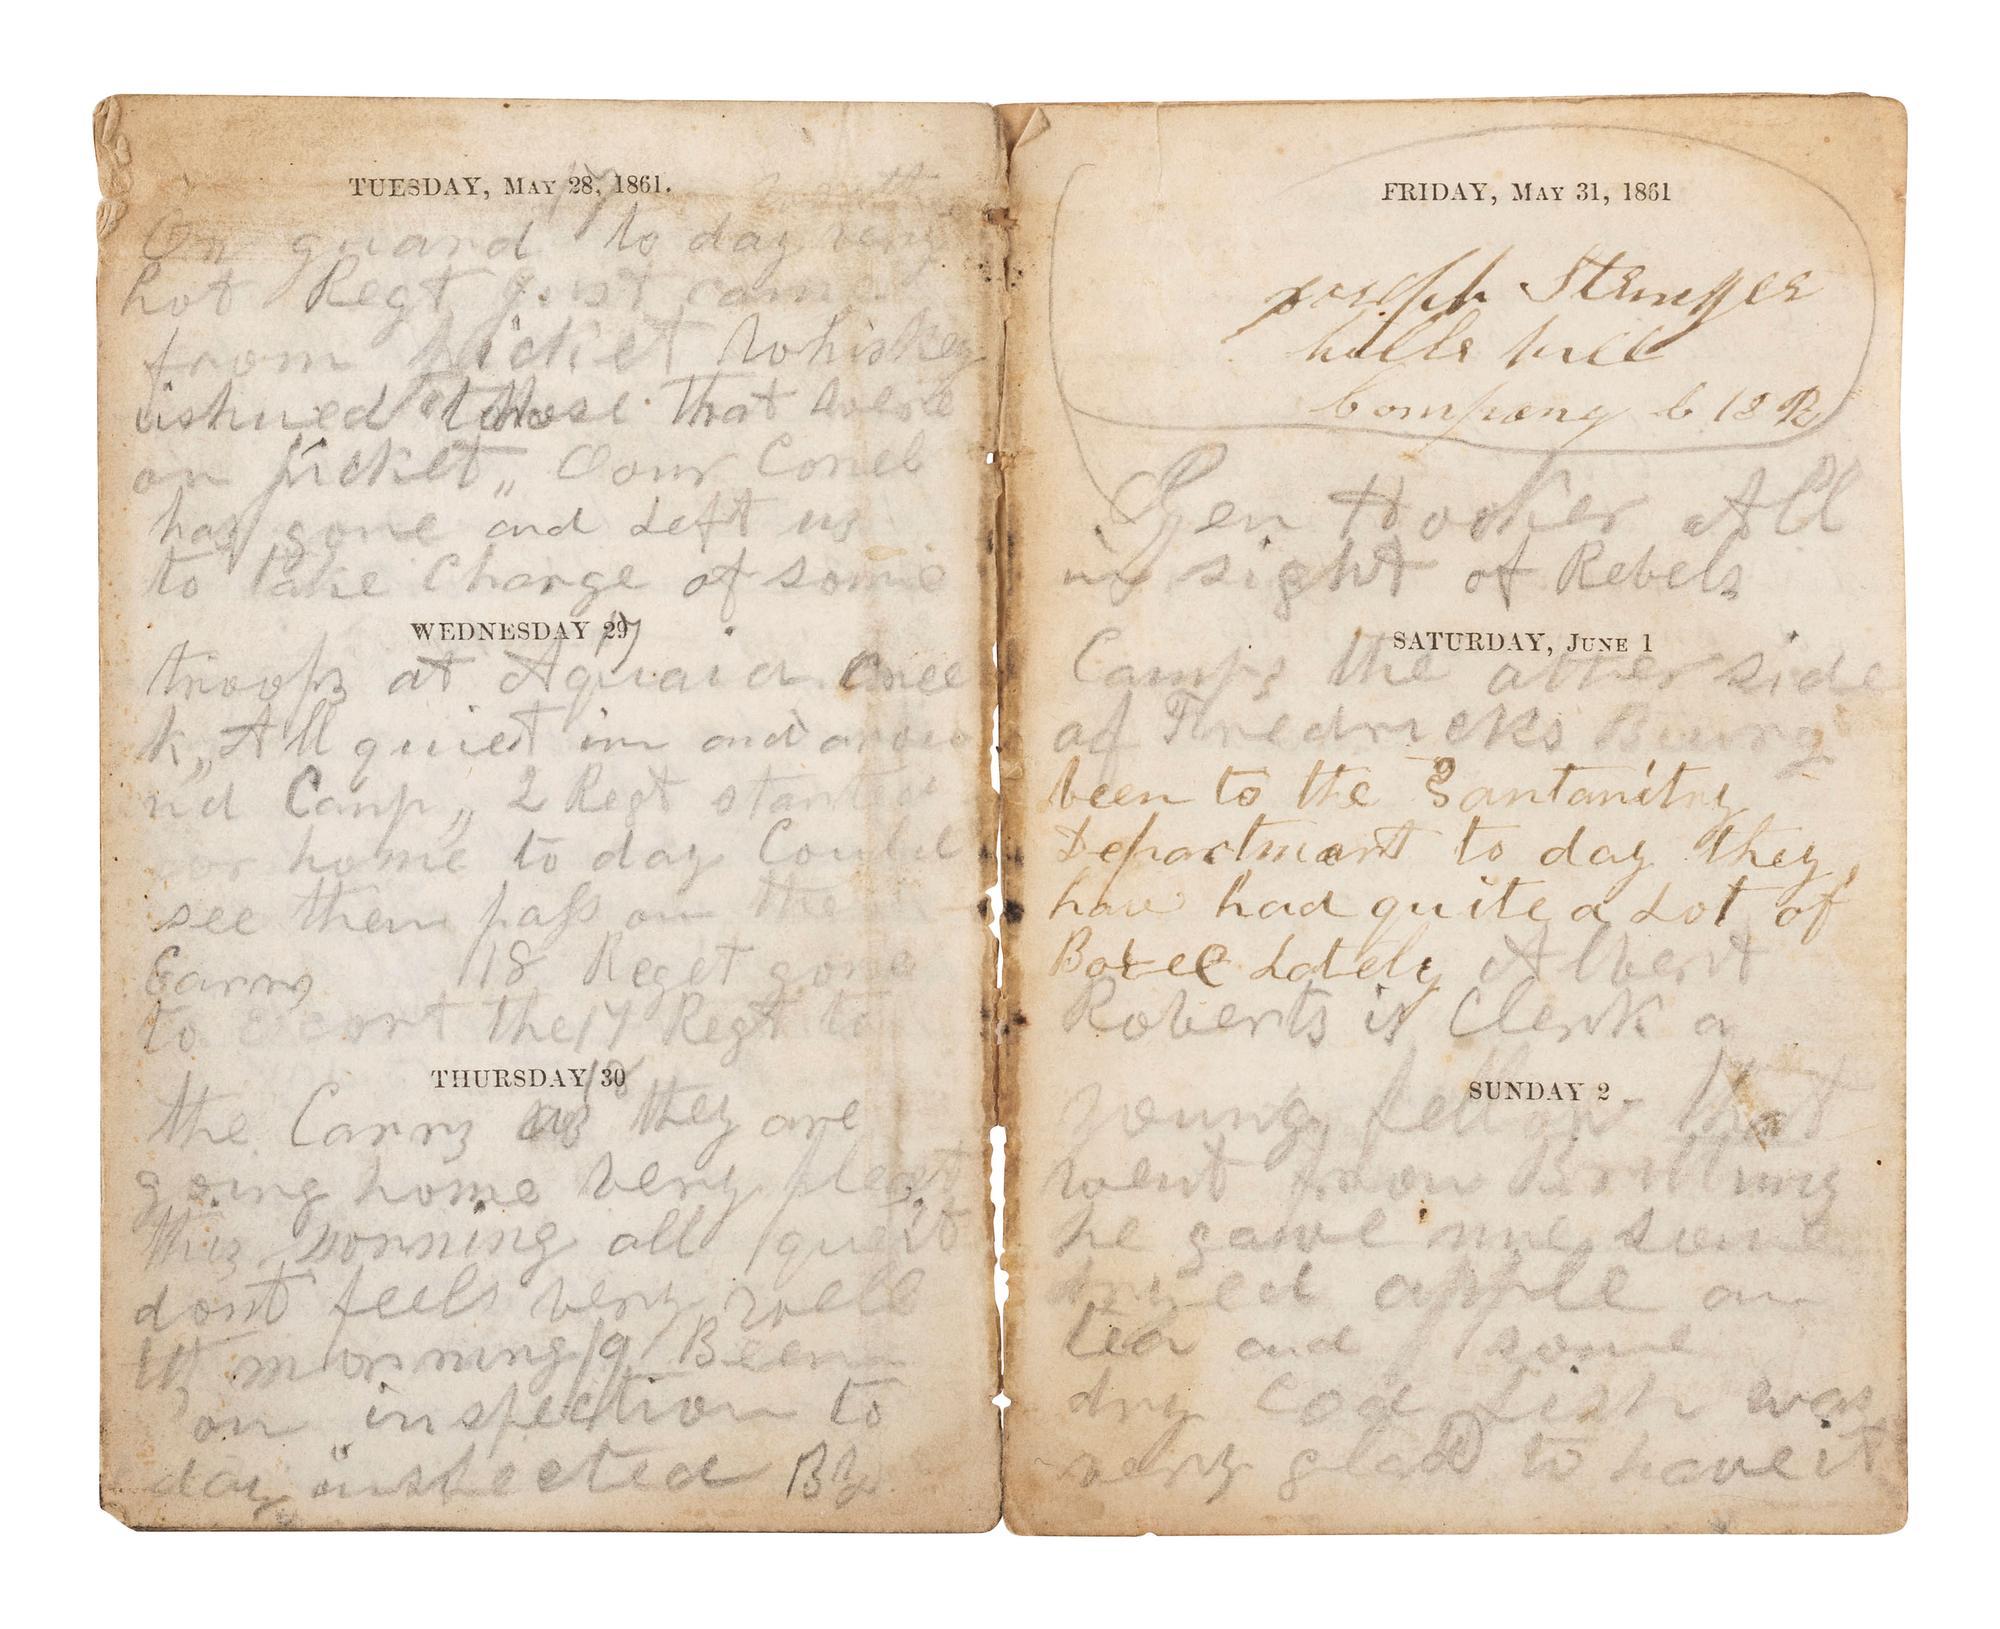 TUESDAY, MAY 28, 1861.
On guard to day very
hot Regt just came
from picket Whiskey
ishued to those that were
on picket,, Oour Coneb
has gone and Left us
to take Charge of some
WEDNESDAY 29
troops at Aquaia Cree
k,, All quiet im and arou
nd Camp,, 2 Regt started
for home to day Could
see them pass on the
Carrs 18 Reget gone
to escort the 17 Regt to
THURSDAY 30
the Carrs as they are
going home very plest
this morning all quiet
dont feels very well
this morning 19 Been
on inspection to
day inspected By
FRIDAY, MAY 31, 1861
joseph
hills
Company 18
Gen Hooker All
in sight of Rebels
SATURDAY, JUNE 1
Camps the other side
of Fredricks Burg
been to the Santanitry
Department to day they
have had quite a Lot of
Lately Albert
Roberts is Clerk a
SUNDAY 2
young fellow that
went from
he gave me some
dryed apple an
tea and some
dry Cod Fish was
very glad to have it